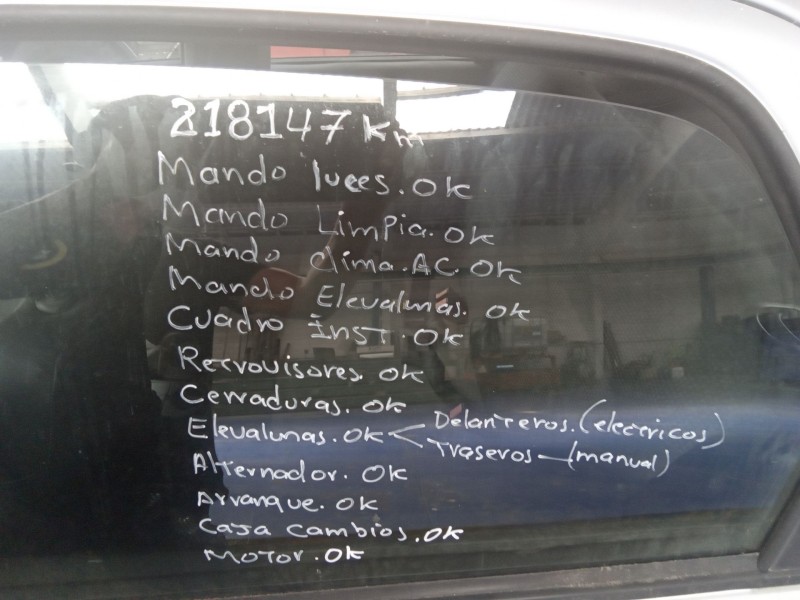 218147 Km
Mando luces. OK
Mando Limpia. OK
Mando clima. AC. OK
Mando Elevalunas. OK
Cuadro Inst. OK
Retrovisores. OK
Cerraduras. OK
Elevalunas. OK < Delanteros. (electricos)
Traseros - (manual)
Alternador. OK
Arranque. OK
Caja cambios. OK
Motor. OK